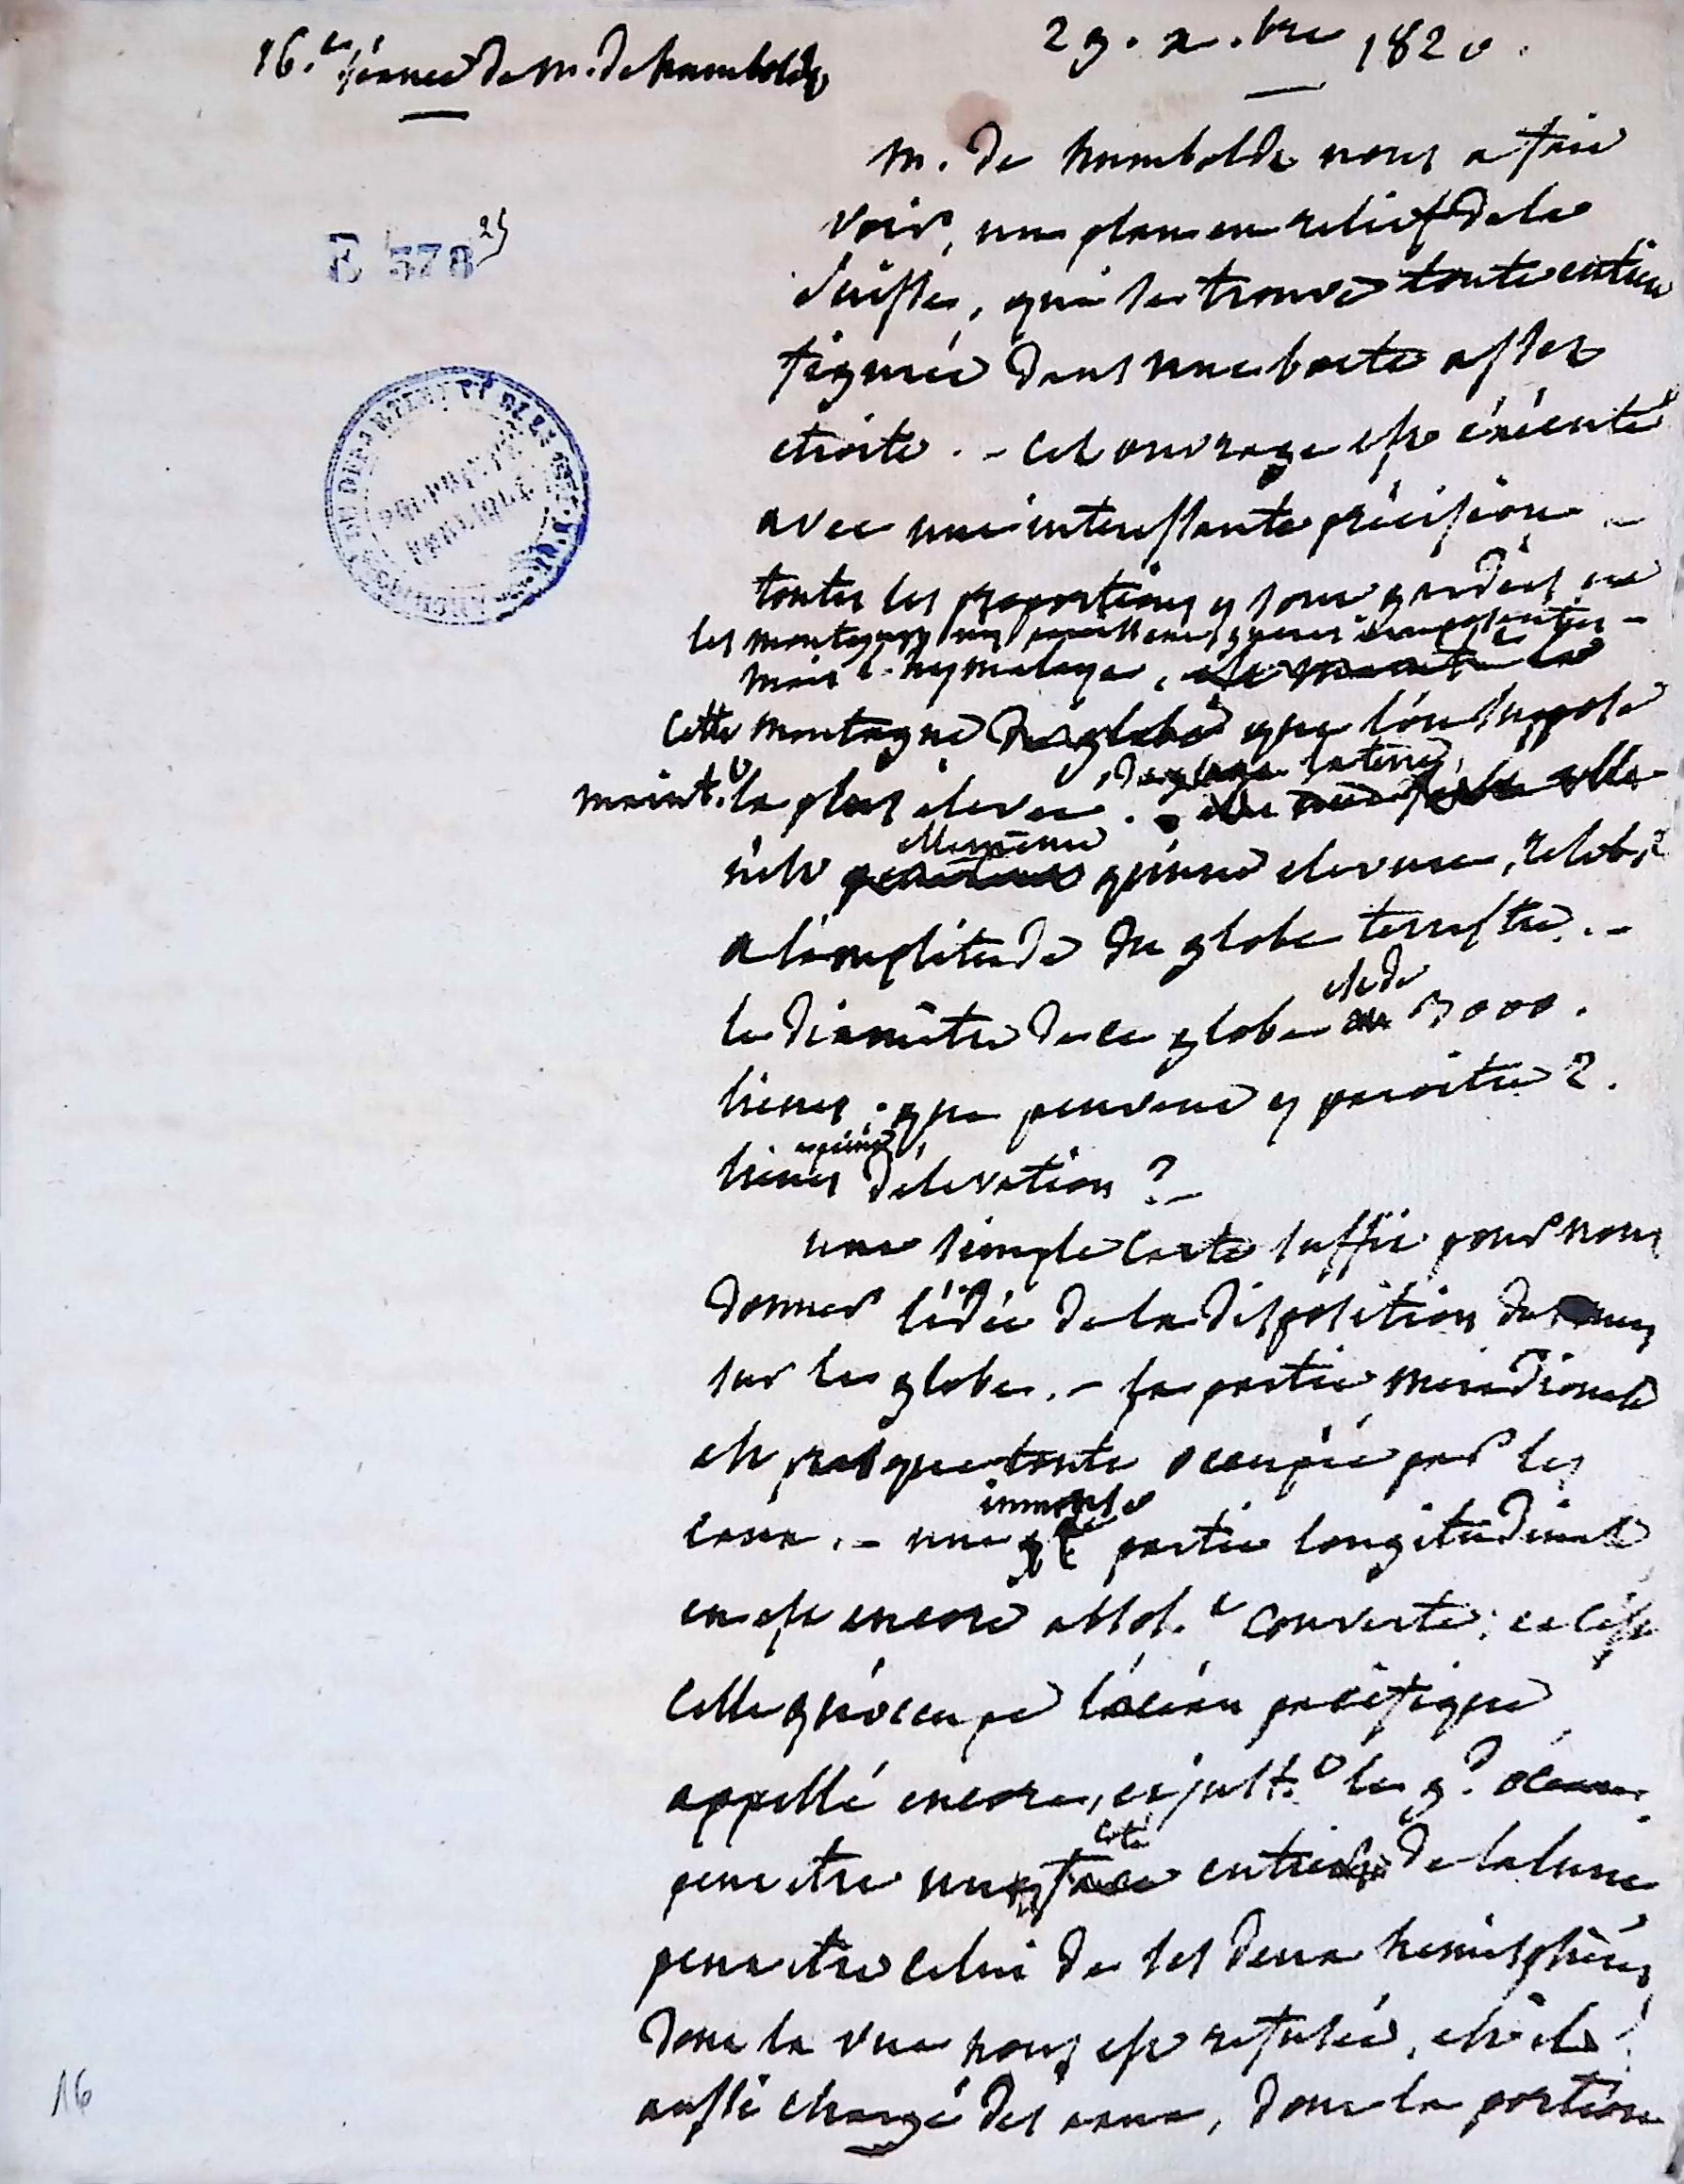 16.e séance de m. de humboldt
29. x.bre 1820.
E 378 25
m. de humboldt nous a fait
voir, un plan en relief de la
suisse, qui se trouve toute entiere
figurée dans une boete assez
etroite. - cet ouvrage est éxécuté
avec une interessante précision -
toutes les proportions y sont gardées,
les montagnes imposantes -
mais l'hymalaya,
cette montagne du globe que l'on suppose
maint.t la plus elevée de la terre,
n'est elle même qu'une relat.
a l'amplitude du globe terrestre. -
le diamètre de ce globe est de 3000.
lieues; que peuvent y paroitre 2.
lieues a peine, d'elevation? -
une simple carte suffit pour nous
donner l'idée de la disposition des eaux
sur le globe. - la partie meridionale
est presque toute occupée par les
eaux. - une immense partie longitudinale
en est encore absol.t couverte; et c'est
celle qu'occupe l'océan pacifique
appellé encore, et just.t le g.d océan.
peut etre un coté entier de la lune
peut etre celui de ses deux hemisphères
dont la vue nous est refusée, est il
aussi chargé des eaux, dont la portion
16